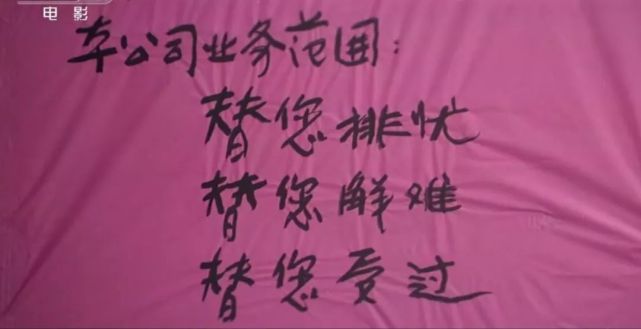 电影
本公司业务范围：
替您排忧
替您解难
替您受过